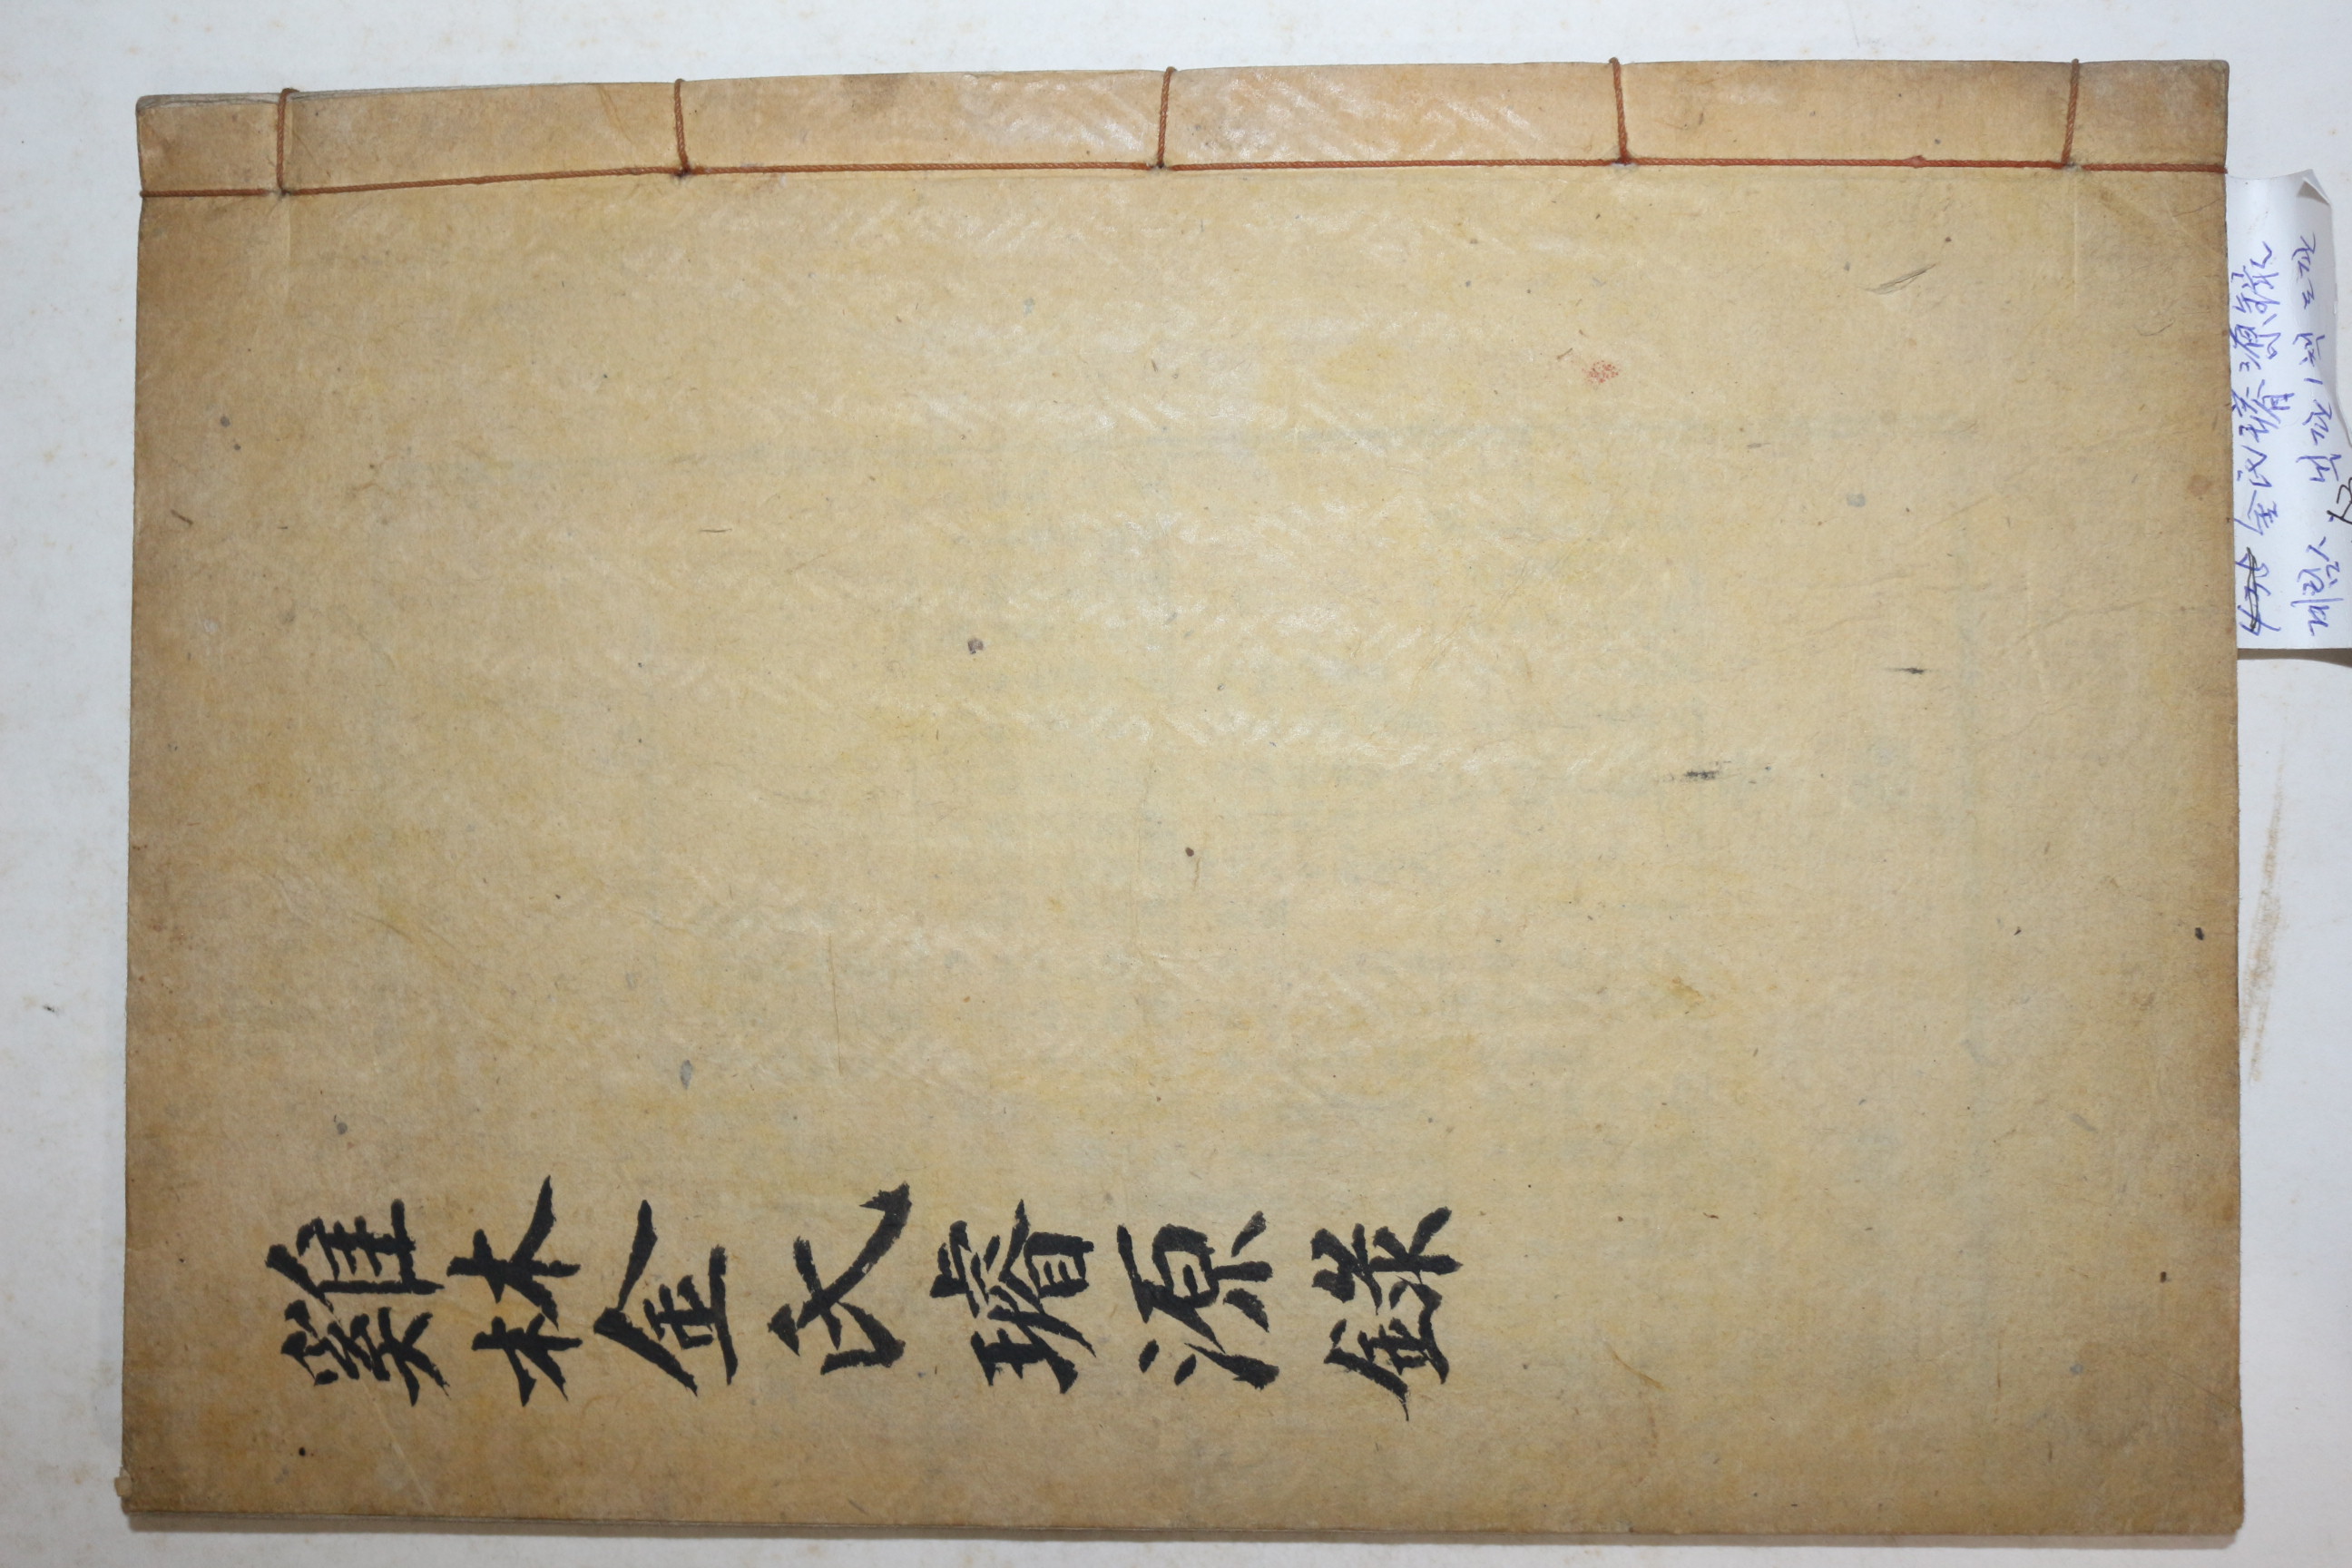 雞林金氏璿源錄
金氏璿源錄
1책